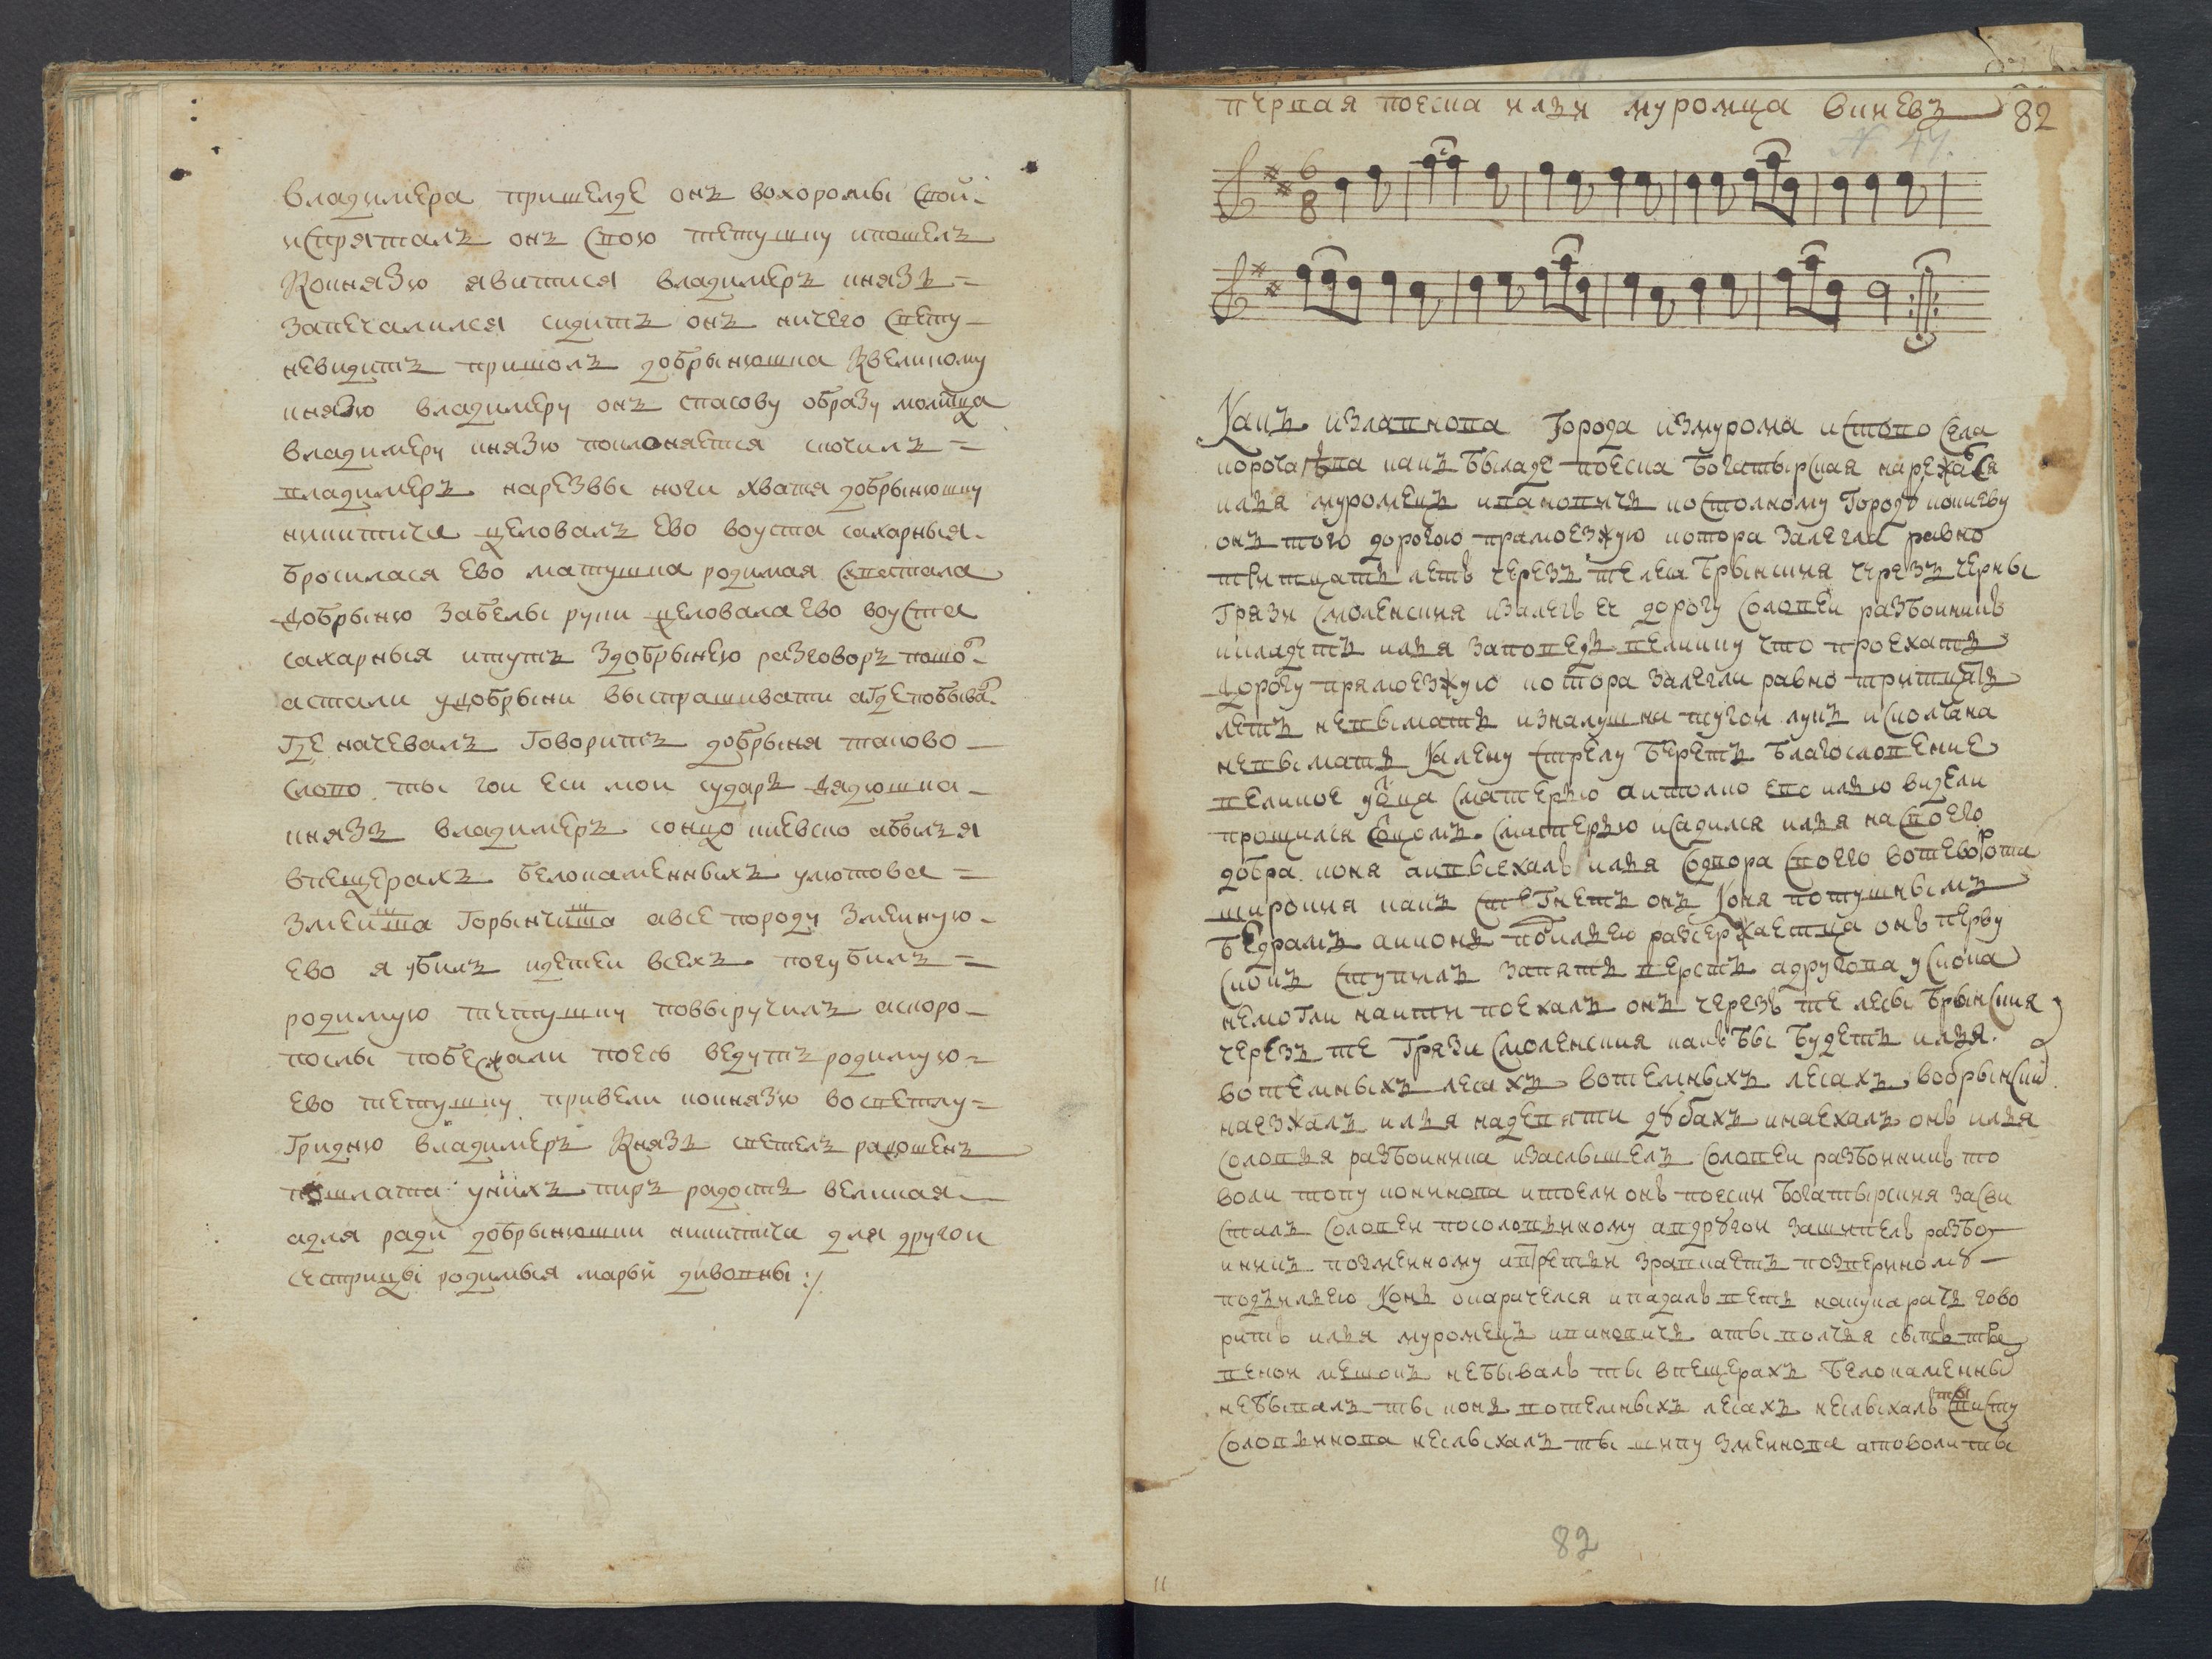 владимера пришелде онъ вохоромы свои
испряталъ онъ свою тетушку ипошелъ
Кокнязю явитися владимеръ князъ =
запечалился сидитъ онъ ничего свету –
невидитъ пришолъ добрынюшка Квеликому
князю владимеру онъ спасову образу молитца
владимеру князю поклоняется скочилъ =
владимеръ нарезвы ноги хватя добрынюшку
никитича целовалъ ево воуста сахарныя
бросилася ево матушка родимая схватала
добрыню забелы руки целовала ево воуста
сахарныя итутъ здобрынею разговоръ пошо
астали удобрыни выспрашивати агдепобыва
Где начевалъ Говоритъ добрыня таково –
слово ты гои еси мои сударъ дядюшка –
князъ владимеръ сонцо киевско абылъ я
впещерахъ белокаменныхъ улютова =
змеища Горынчища авсе породу змеиную
ево я убилъ идетеи всехъ погубилъ =
родимую тетушку повыручилъ аскоро –
послы побежали поеѣ ведутъ родимую =
ево тетушку привели кокнязю восветлу =
Гридню владимеръ Князъ светелъ радошенъ
пошлата унихъ пиръ радостъ великая
адля ради добрынюшки никитича для другои
сестрицы родимыя марьи дивовны :/
первая поезка ильи муромца вкиевъ 82
N. 47.
6
8
Какъ изславнова Города измурома истово села
корочаева какъ быладе поездка богатырская нарежался
илья муромецъ ивановичъ костолному Городу кокиеву
онъ тою дорогою прамоезжую котора залегла равно
тритцатъ летъ черезъ те леса брынския черезъ черны
Грязи смоленския изалегъ ее дорогу соловеи разбоиникъ
икладетъ илья заповедъ велику что проехатъ
дорогу прямоезжую котора залегли равно тритцатъ
летъ невыматъ изналушна тугои лукъ исколчана
невыматъ Калену стрелу беретъ благословение
великое уотца сматерью аитолко ево илью видели
прощился сотцомъ сматерью исадился илья насвоего
добра коня аивыехалъ илья содвора своего вотевороты
широкия какъ стегнетъ онъ Коня потушнымъ
бедрамъ аиконь подилъею расержаетца онъ перву
скокъ ступилъ запять верстъ адругова ускока
немогли наити поехалъ онъ черезъ те лесы брынския
черезъ те Грязи смоленския какъбы будетъ илья
вотемныхъ лесахъ вотемныхъ лесахъ вобрынски
наезжалъ илья надевяти дубахъ инаехалъ онъ илья
соловья разбоиника изаслышелъ соловеи разбоиникъ то
воли топу кониннова итоели онъ поезки богатырския засви
сталъ соловеи посоловьиному авдругои зашипелъ разбо
иникъ позмеиному ивтретьи зрявкаетъ позвериному –
подъильею Конь окарачелся ипадалъ ветъ накукарачь гово
ритъ илья муромецъ ивановичъ аты волчья сыть тра
веной мешокъ небывалъ ты впещерахъ белокаменны
небывалъ ты конь вотемныхъ лесахъ неслыхалъ ты свисту
соловьинова неслыхалъ ты шипу змеинова атоволи ты
82
11